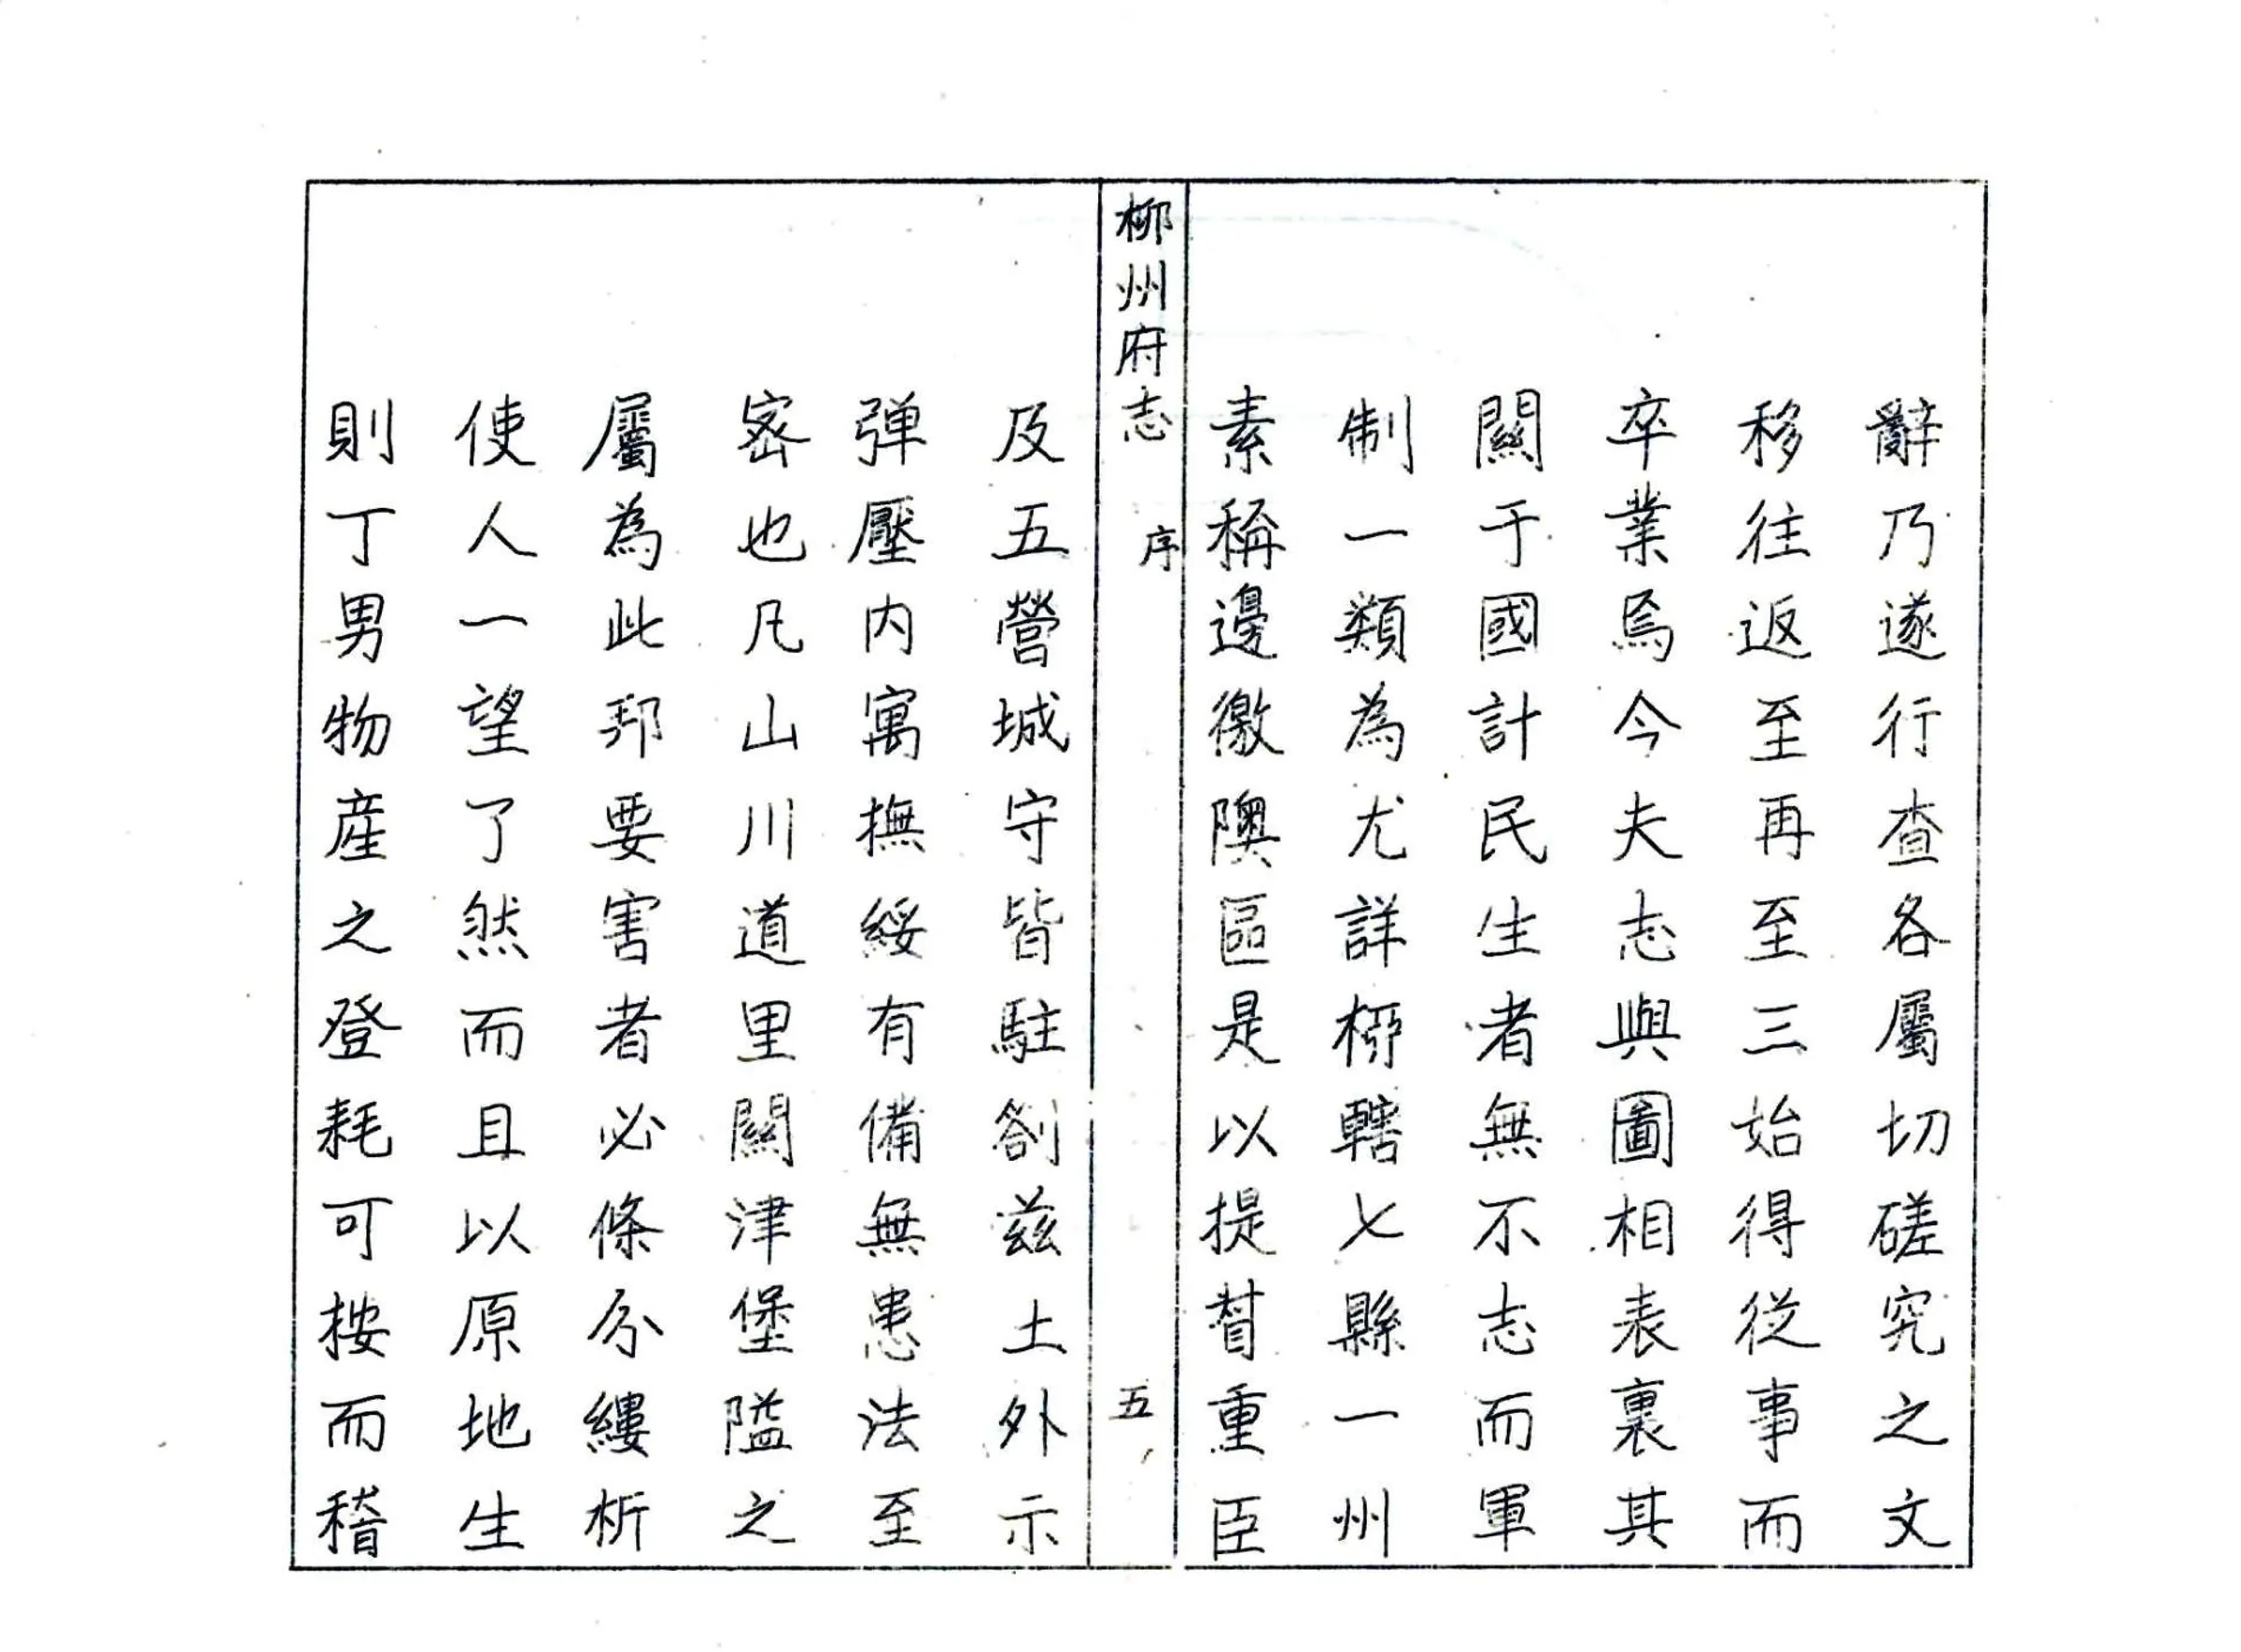 辭乃遂行查各屬切磋究之文
移往返至再至三始得從事而
卒業焉今夫志與圖相表裏其
關于國計民生者無不志而軍
制一類為尤詳栁轄七縣一州
素稱邊徼隩區是以提督重臣
柳州府志 序 五
及五營城守皆駐劄兹土外示
弹壓内寓撫綏有備無患法至
宻也凡山川道里關津堡隘之
屬為此邦要害者必條分縷析
使人一望了然而且以原地生
則丁男物産之登耗可按而稽